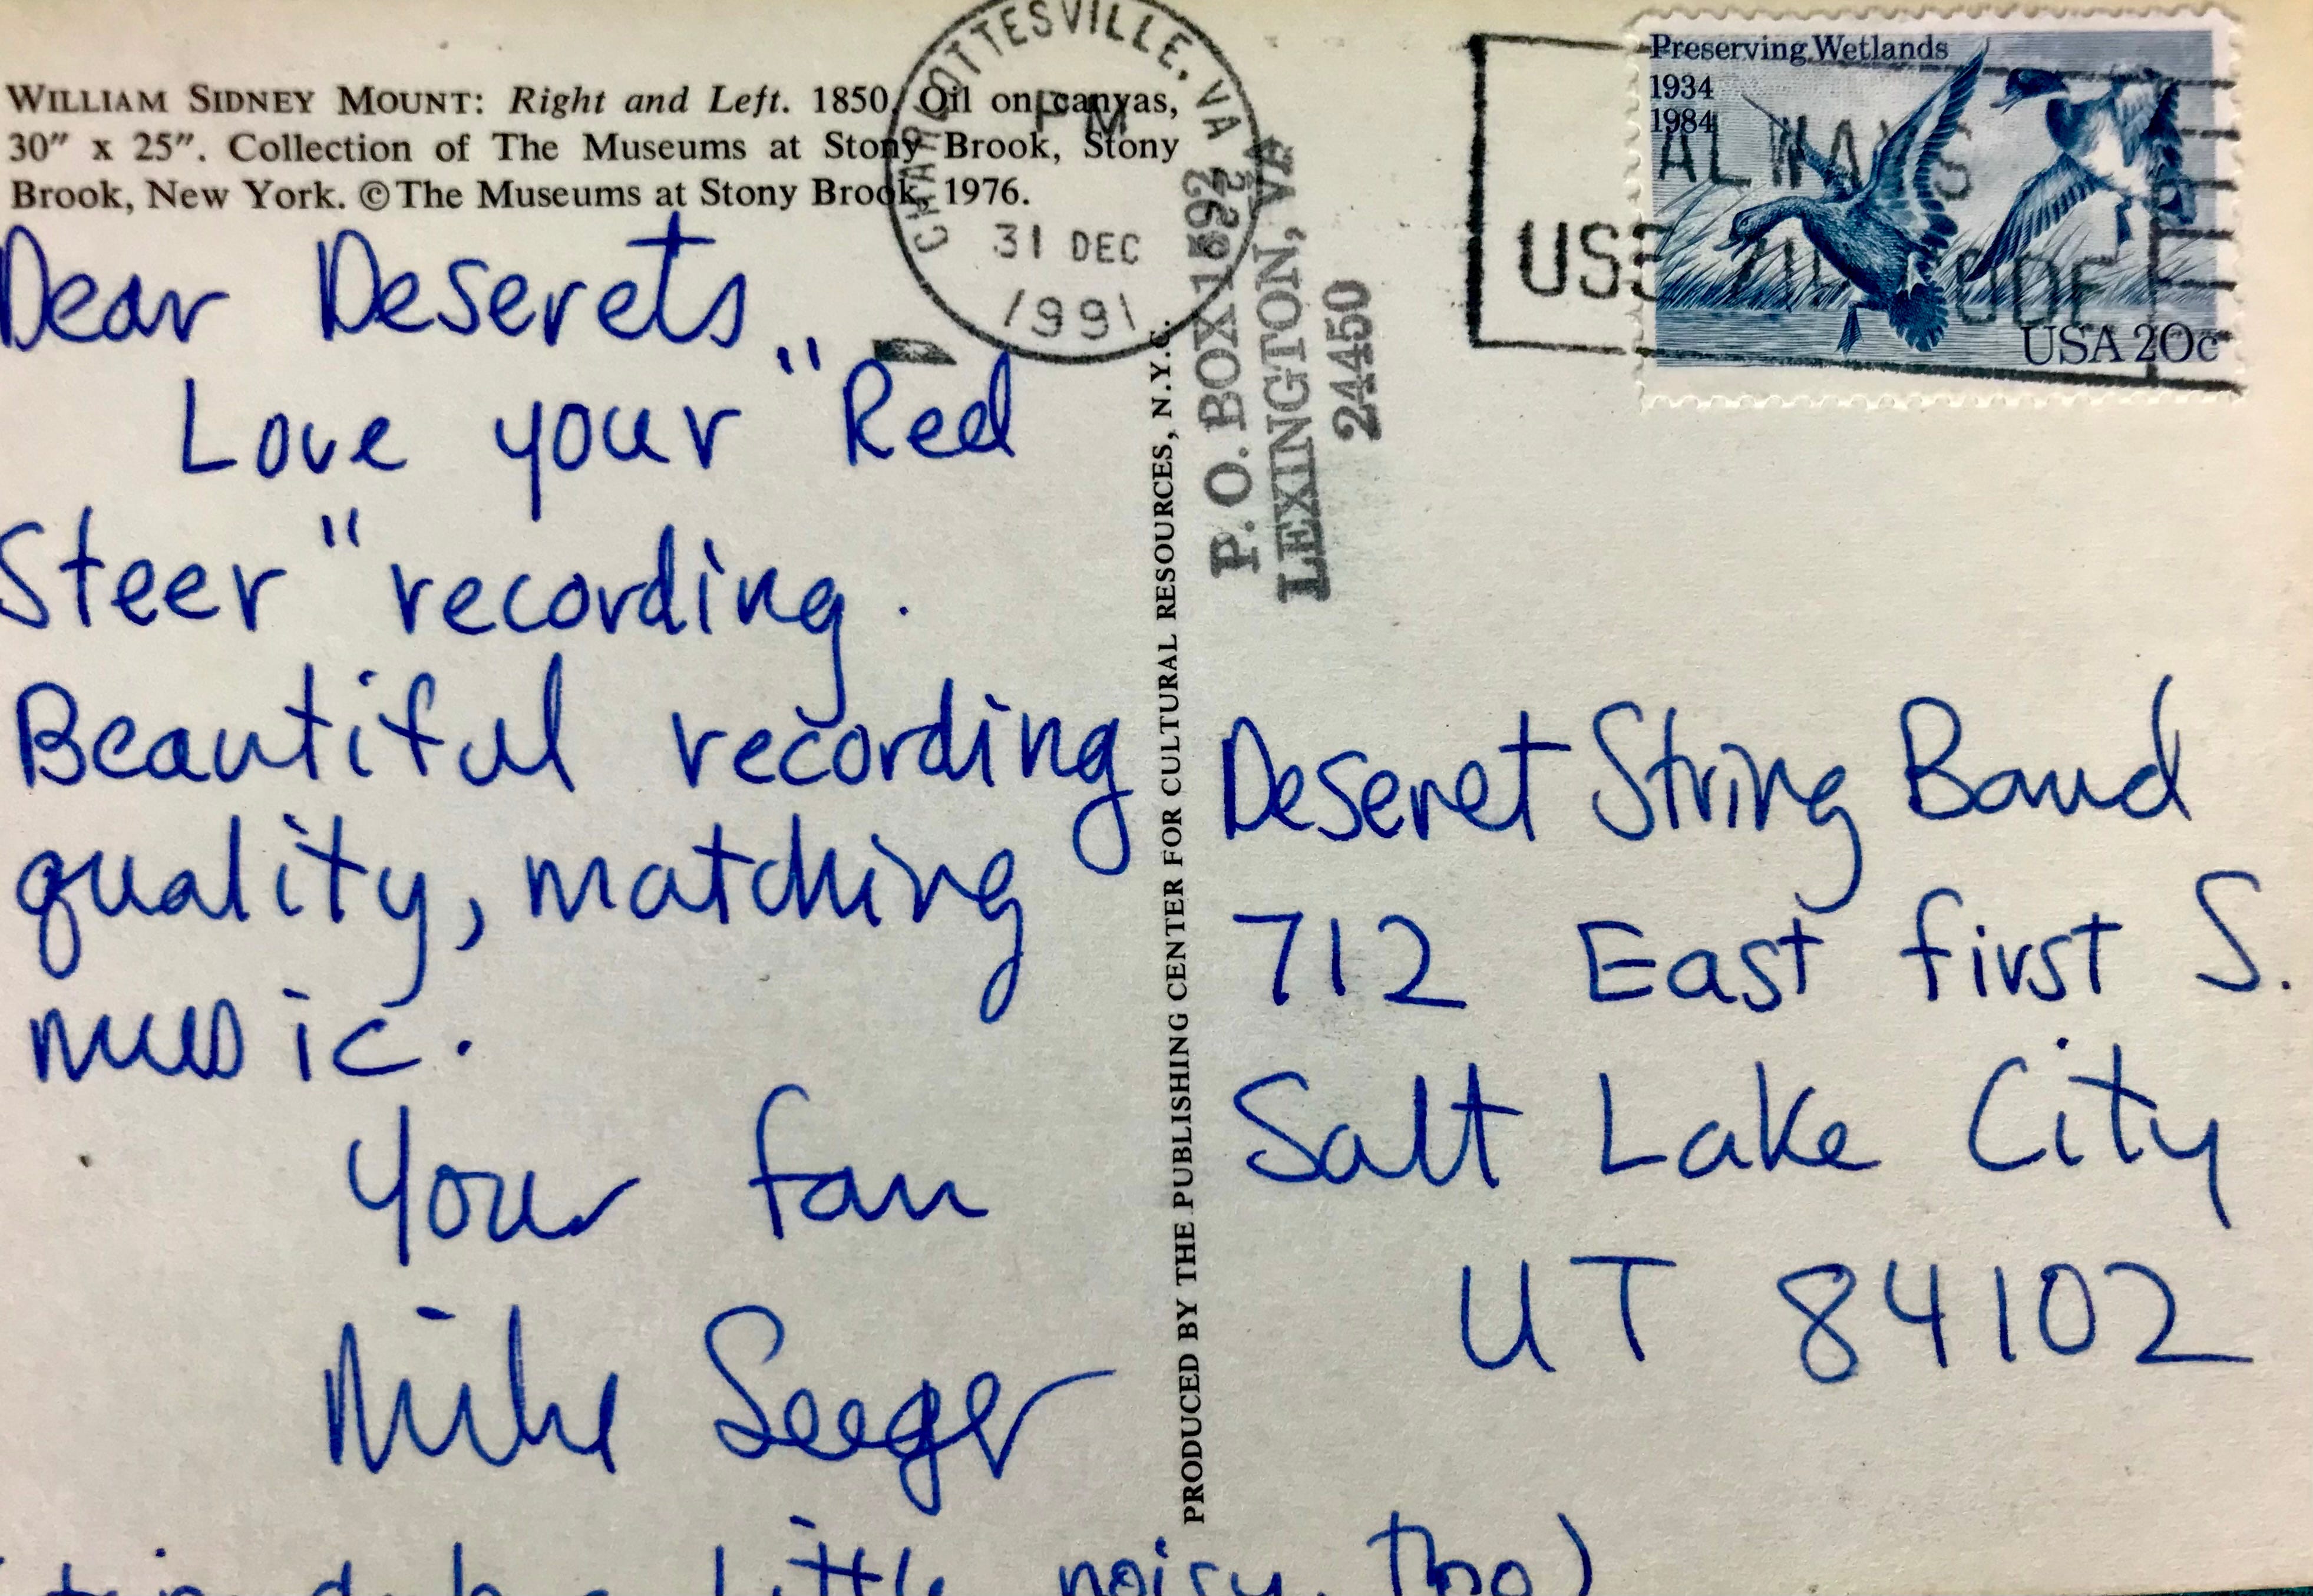 WILLIAM SIDNEY MOUNT: Right and Left. 1850. Oil on canvas,
30" x 25". Collection of The Museums at Stony Brook, Stony
Brook, New York. ©The Museums at Stony Brook, 1976.
Dear Deserets,
Love your "Red
Steer" recording.
Beautiful recording
quality, matching
music.
Your fan
Mike Seeger
little noisy, tho)
PRODUCED BY THE PUBLISHING CENTER FOR CULTURAL RESOURCES, N.Y.C.
CHARLOTTESVILLE, VA
PM
31 DEC
1991
P.O. BOX 1592
LEXINGTON, VA
24450
Preserving Wetlands
1934
1984
USA 20c
ALWAYS
USE ZIP CODE
Deseret String Band
712 East first S.
Salt Lake City
UT 84102